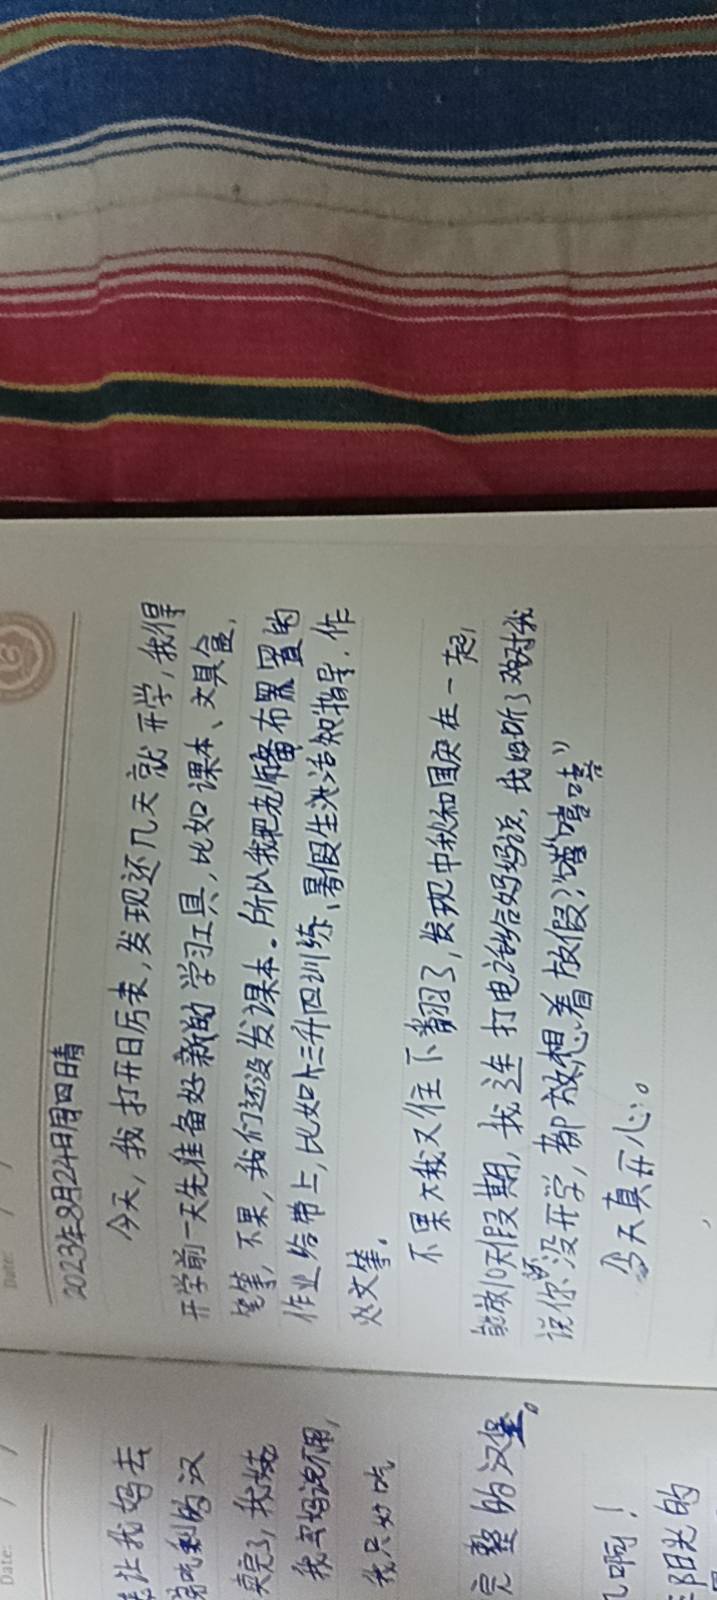 Date: / /
2023年8月24日周四晴
今天，我打开日历表，发现还几天就开学，我得
开学前一天先准备好新的学习工具，比如课本、文具盒、
笔等，不果，我们还没发课本。所以我把老师备布置的
作业给带上，比如三升四训练、暑假生活知指导、作
文等。
不果我又往下翻了，发现中秋和国庆在一起，
能放10天假期，我连打电话给妈妈说，我妈听了对我
说你还没开学，都放想着放假；嘻嘻
今天真开心。
Date: / /
让我妈去
剩的汉
卖完了，我
我妈说不用，
我只好吃
完整的汉堡。
啊！
阳光的